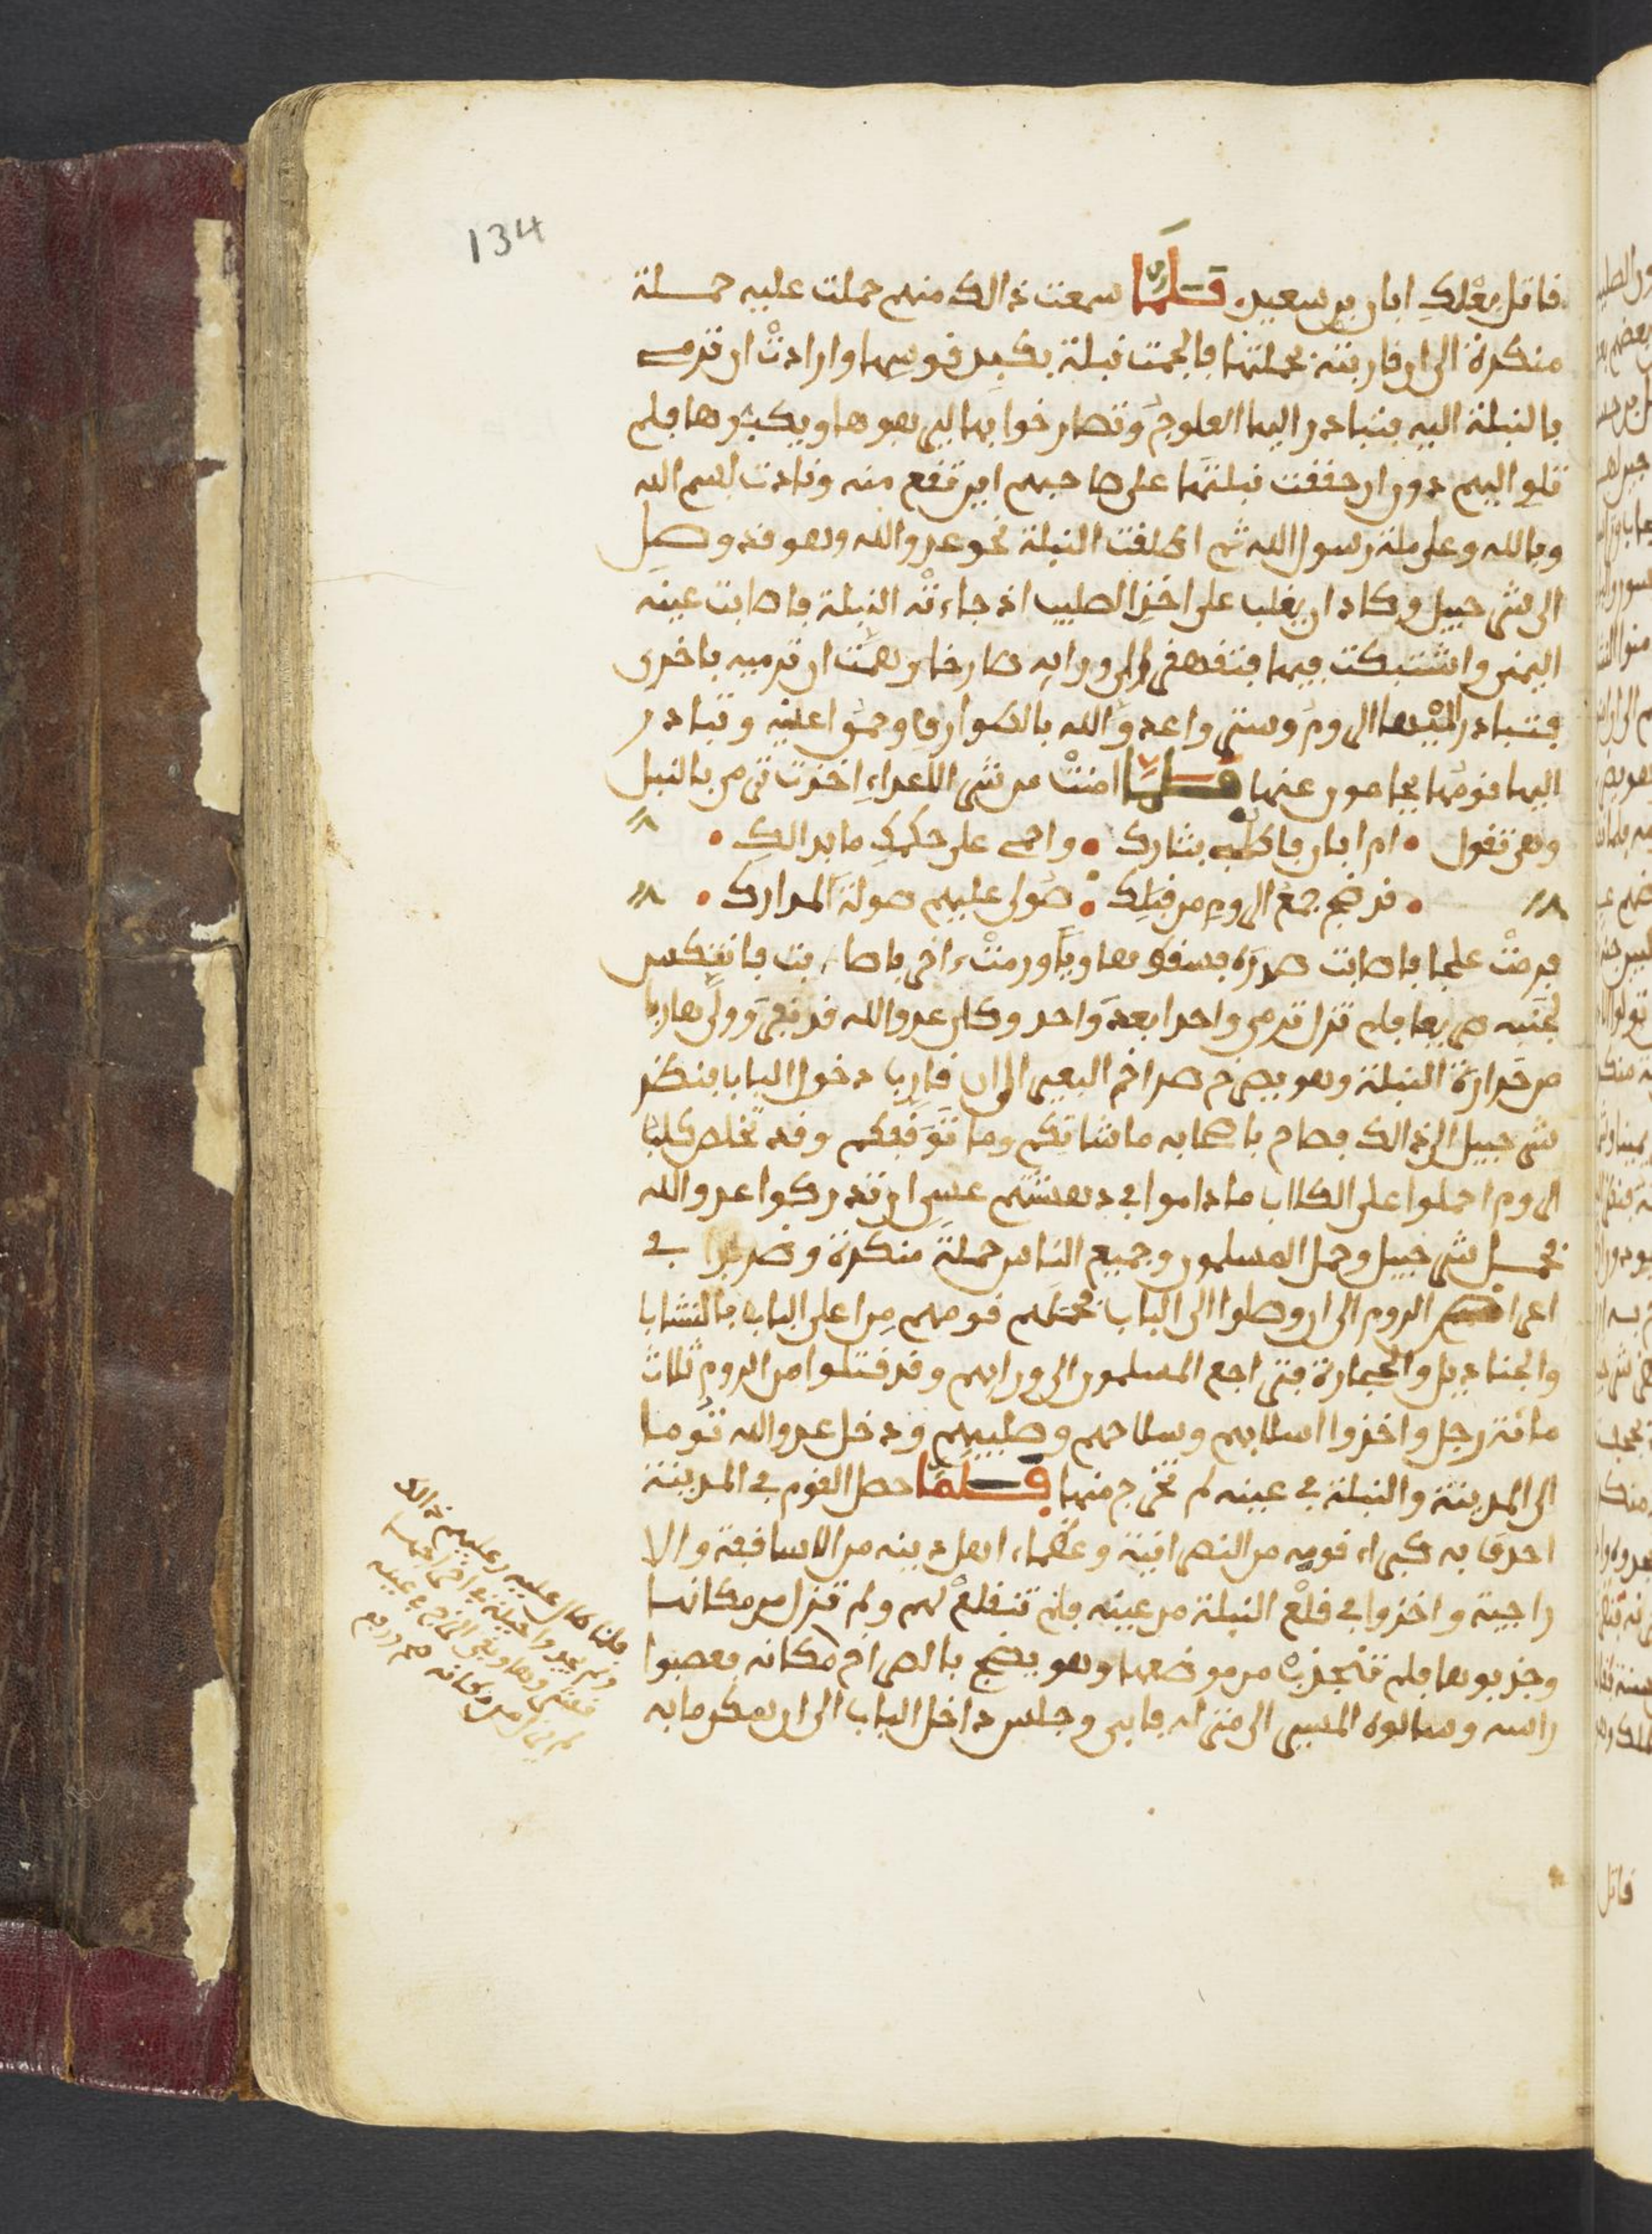 134
قاتل بعلك ابان بن سعيد. فلما سمعت ذالك منهم حملت عليه حملة
منكرة الى ان قاربته بحملتها فالجمت نبلة بكبد قوسها وارادت ان ترمي
بالنبلة اليه فتبادر اليها العلوج وتصارخوا بها ليرهبوها ويكثروها فلم
تلو اليهم دون ان حققت نبلتها على صاحبهم اين تقع منه ونادت بسم الله
وبالله وعلى ملة رسول الله ثم اطلقت النبلة نحو عدو الله وهو قد وصل
الى شرحبيل وكاد ان يغلب على اخذ الصليب اذ جاءته النبلة فاصابت عينه
اليمنى واشتبكت فيها فتقهقر الى ورايه صارخا وهمت ان ترميه باخرى
فتبادر اليها الروم وستروا عدو الله بالطوارق وحموا عليه وتبادر
اليها قومها يحامون عنها فلما امنت من شر الاعداء اخذت ترمي بالنبل
وهي تقول • ام ابان فاطلبي بثارك • واحمي على حكمك ما بدا لك •
• قد ضج جمع الروم من قبلك • صولي عليهم صولة المدارك •
فرمت علجا فاصابت صدره فسقط هاويا ورمت ءاخر فاصابت فانتكس
لجنبه صريعا فلم تزل ترمي واحدا بعد واحد وكان عدو الله قد تقهقر وولى هاربا
من حرارة النبلة وهو يصرخ صراخ البعير الى ان قارب دخول الباب فنظر
شرحبيل الى ذالك فصاح باصحابه ما شانكم وما توقفكم وقد تخلص كلب
الروم احملوا على الكلاب ما داموا في دهشتهم عسى ان تدركوا عدو الله
فحمل شرحبيل وحمل المسلمون وجميع الناس حملة منكرة وضربوا في
اعراض الروم الى ان وصلوا الى الباب فحمتهم قومهم من اعلى الباب بالنشاب
والجناديل والحجارة فتراجع المسلمون الى ورايهم وقد قتلوا من الروم ثلاث
مائة رجل واخذوا اسلابهم وسلاحهم وصليبهم ودخل عدو الله توما
الى المدينة والنبلة في عينه لم تخرج منها فلما حصل القوم في المدينة
احدق به كبراء قومه من النصرانية وعظماء اهل دينه من الاساقفة والا
راجية واخذوا في قلع النبلة من عينه فلم تنقلع لهم ولم تزل من مكانها
وجذبوها فلم تنجذب من موضعها وهو يضج بالصراخ مكانه فعصبوا
راسه وسالوه المسير الى منزله فابى وجلس داخل الباب الى ان سكن ما به
فلما طال عليهم ذالك
ولم يجدوا حيلة في اخراجها
نشروها وبقى الزج في عينه
لم يزل من مكانه